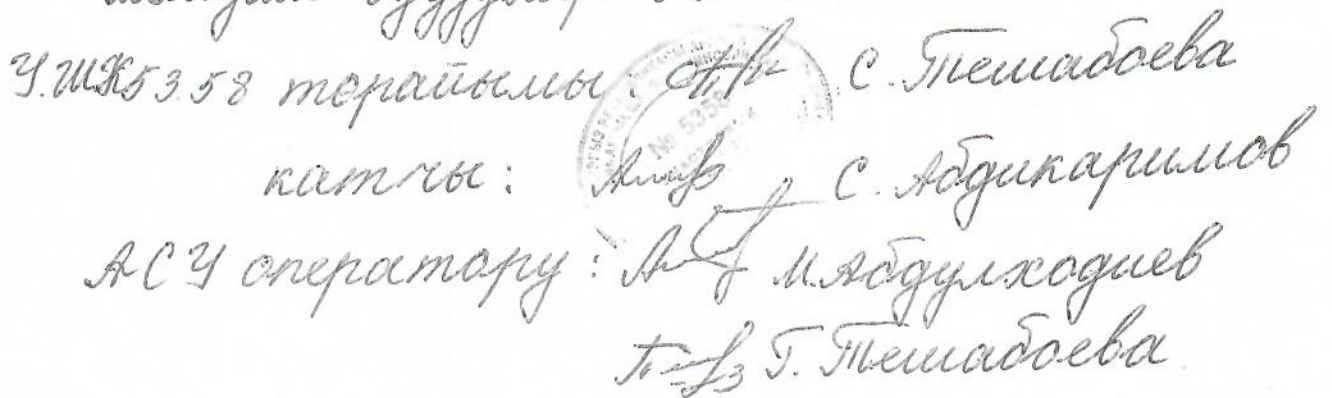 У.ШК5358 төрайымы: С. Тешабоева
№ 5358
катчы: С. Абдикаримов
АСУ оператору: М. Абдулходиев
Г. Тешабоева